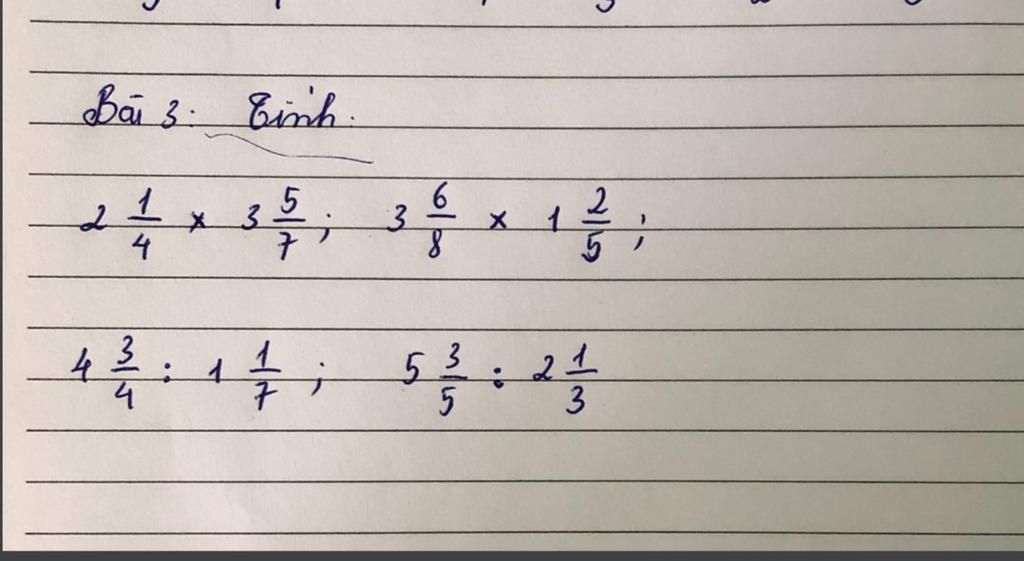 Bài 3: Tính.
2 1/4 x 3 5/7 ; 3 6/8 x 1 2/5 ;
4 3/4 : 1 1/7 ; 5 3/5 : 2 1/3